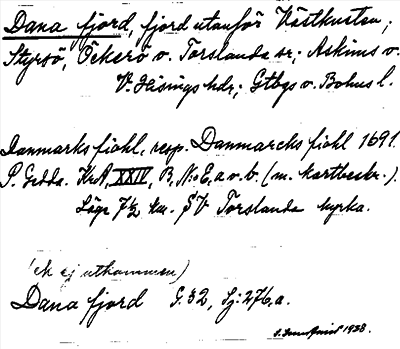 Dana fjord, fjord utanför Västkusten;
Styrsö, Öckerö o. Torslanda sr; Askims o.
V. Hisings hdr; Gtbgs o. Bohus l.
Danmarks fiohl, resp. Danmarcks fiohl 1691.
P. Gedda. KrA, XXIV, B, N:o E, a o. b. (m. kartbeskr.).
Läge 7½ km. SV Torslanda kyrka.
(ek ej utkommen)
Dana fjord S. 32, Sj: 276, a.
1938.